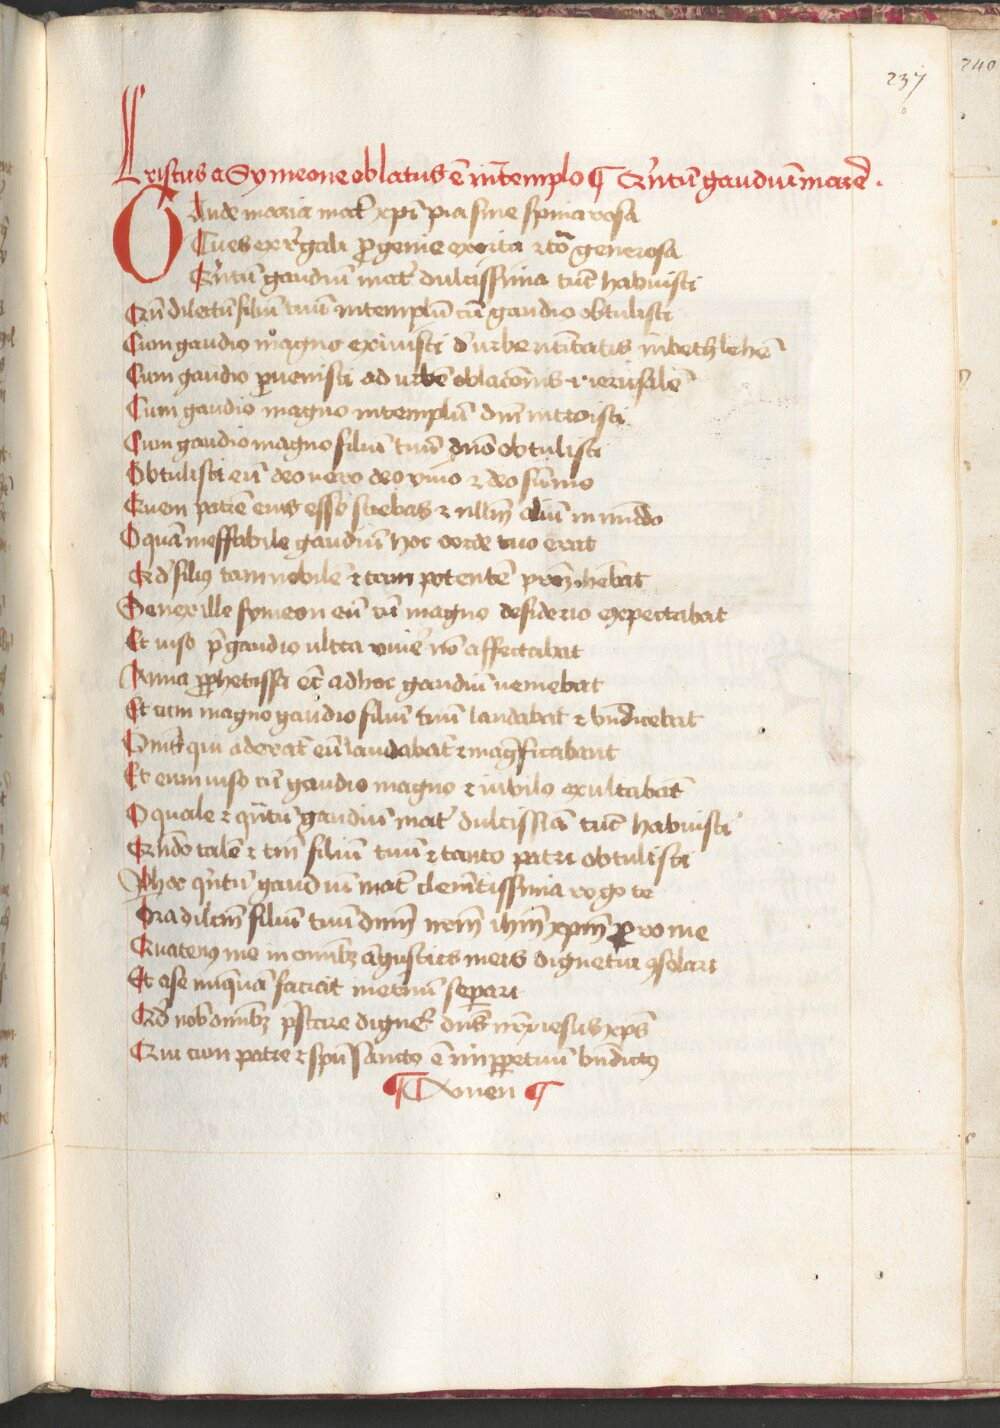 237
240
Cristus a Symeone oblatus ē in tēplo ¶ Qn̄tū gaudiū marie .
Gaude maria mat̄ xp̄i pia sine spina rosa
Tu es ex r̄gali ꝓgenie exorta et tō generosa
Qn̄tū gaudiū mat̄ dulcissima tūc habuisti
Cū dilectū filiū tuū in templū cū gaudio obtulisti
Cum gaudio magno exiuisti d̄ urbe nt̄itatis in bethlehē
Cum gaudio ꝑuenisti ad urbē oblacōnis i ierusalē
Cum gaudio magno in templū dn̄i introisti
Cum gaudio magno filiū tuū dn̄o obtulisti
Obtulisti eū deo uero deo viuo et deo sūmo
Quem patrē eius esse sciebas et nllm̄ aliū in mūdo
O quā ineffabile gaudiū hoc corde tuo erat
Qd̄ filiꝰ tam nobilē et tam potentē pr̄em hēbat
Senex ille symeon eū cū magno desiderio expectabat
Et uiso p̄ gaudio ultra viuē nō affectabat
Anna ꝓphetissa ec̄ ad hoc gaudiū ueniebat
Et cum magno gaudio filiū tuū laudabat et bn̄dicebat
Vniū̄si qui aderāt eū laudabāt et magn̄ificabant
Et eum uiso cū gaudio magno et iubilo exultabāt
O quale et qn̄tū gaudiū mat̄ dulcissīa tūc habuisti
Qn̄do talē et tm̄ filiū tuū et tanto patri obtulisti
P hoc qn̄tū gaudiū mat̄ clemētissima rogo te
Ora dilcm̄ filiū tuū dnm̄ nrm̄ ihm̄ xpm̄ ꝓ ro me
Quatenꝰ me in omībꝫ āgustiis meis dignetur ꝯsolari
Et a se nūquā faciat inetnū seꝑari
Qd̄ nob̄ omībꝫ p̄stare dignet̄ dn̄s nr̄ iesus xp̄s
Qui cum patre et spū sancto ē in ꝑpetuū bn̄dictꝰ
¶ Amen ¶